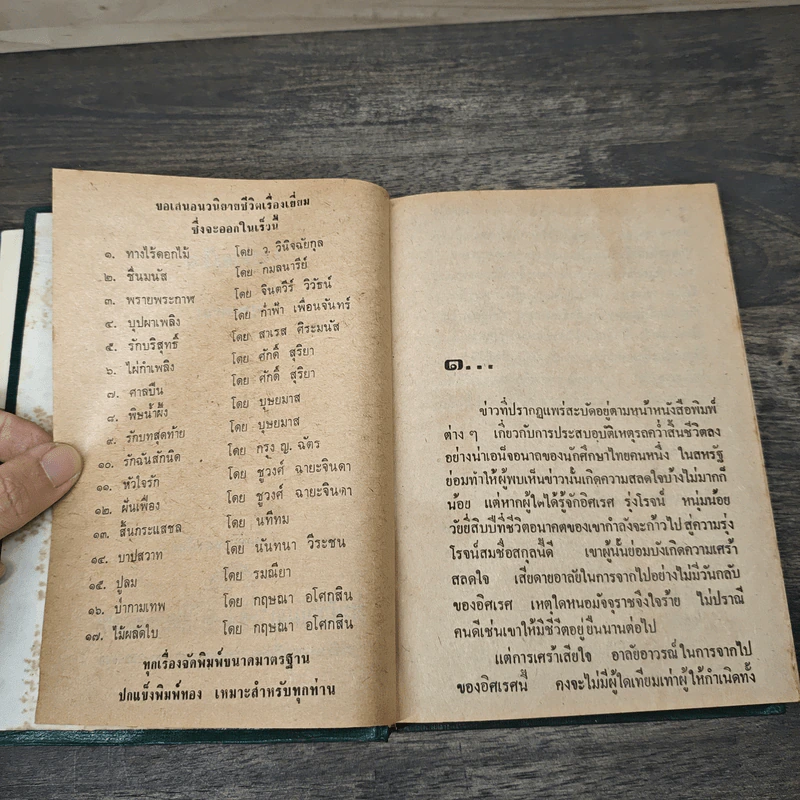 ขอเสนอนวนิยายชีวิตเรื่องเยี่ยม
ซึ่งจะออกในเร็วนี้
๑. ทางไร้ดอกไม้ โดย ว. วินิจฉัยกุล
๒. ชื่นมนัส โดย กมลนารีย์
๓. พรายพระกาฬ โดย จินตวีร์ วิวัธน์
๔. บุปผาเพลิง โดย ก่ำฟ้า เพื่อนจันทร์
๕. รักบริสุทธิ์ โดย สาเรส ศิระมนัส
๖. ไผ่กำเพลิง โดย ศักดิ์ สุริยา
๗. ศาลปืน โดย ศักดิ์ สุริยา
๘. พิษน้ำผึ้ง โดย บุษยมาส
๙. รักบทสุดท้าย โดย บุษยมาส
๑๐. รักฉันสักนิด โดย กรุง ญ. ฉัตร
๑๑. หัวใจรัก โดย ชูวงศ์ ฉายะจินดา
๑๒. ฝันเฟื่อง โดย ชูวงศ์ ฉายะจินดา
๑๓. สิ้นกระแสชล โดย นทีทม
๑๔. บาปสวาท โดย นันทนา วีระชน
๑๕. ปูลม โดย รมณียา
๑๖. ป่ากามเทพ โดย กฤษณา อโศกสิน
๑๗. ไม้ผลัดใบ โดย กฤษณา อโศกสิน
ทุกเรื่องจัดพิมพ์ขนาดมาตรฐาน
ปกแข็งพิมพ์ทอง เหมาะสำหรับทุกท่าน
๑...
ข่าวที่ปรากฏแพร่สะบัดอยู่ตามหน้าหนังสือพิมพ์
ต่าง ๆ เกี่ยวกับการประสบอุบัติเหตุรถคว่ำสิ้นชีวิตลง
อย่างน่าเอน็จอนาถของนักศึกษาไทยคนหนึ่ง ในสหรัฐ
ย่อมทำให้ผู้พบเห็นข่าวนั้นเกิดความสลดใจบ้างไม่มากก็
น้อย แต่หากผู้ใดได้รู้จักอิศเรศ รุ่งโรจน์ หนุ่มน้อย
วัยยี่สิบปีที่ชีวิตอนาคตของเขากำลังจะก้าวไปสู่ความรุ่ง
โรจน์สมชื่อสกุลนี้ดี เขาผู้นั้นย่อมบังเกิดความเศร้า
สลดใจ เสียดายอาลัยในการจากไปอย่างไม่มีวันกลับ
ของอิศเรศ เหตุใดหนอมัจจุราชจึงใจร้าย ไม่ปราณี
คนดีเช่นเขาให้มีชีวิตอยู่ยืนนานต่อไป
แต่การเศร้าเสียใจ อาลัยอาวรณ์ในการจากไป
ของอิศเรศนี้ คงจะไม่มีผู้ใดเทียมเท่าผู้ให้กำเนิดทั้ง